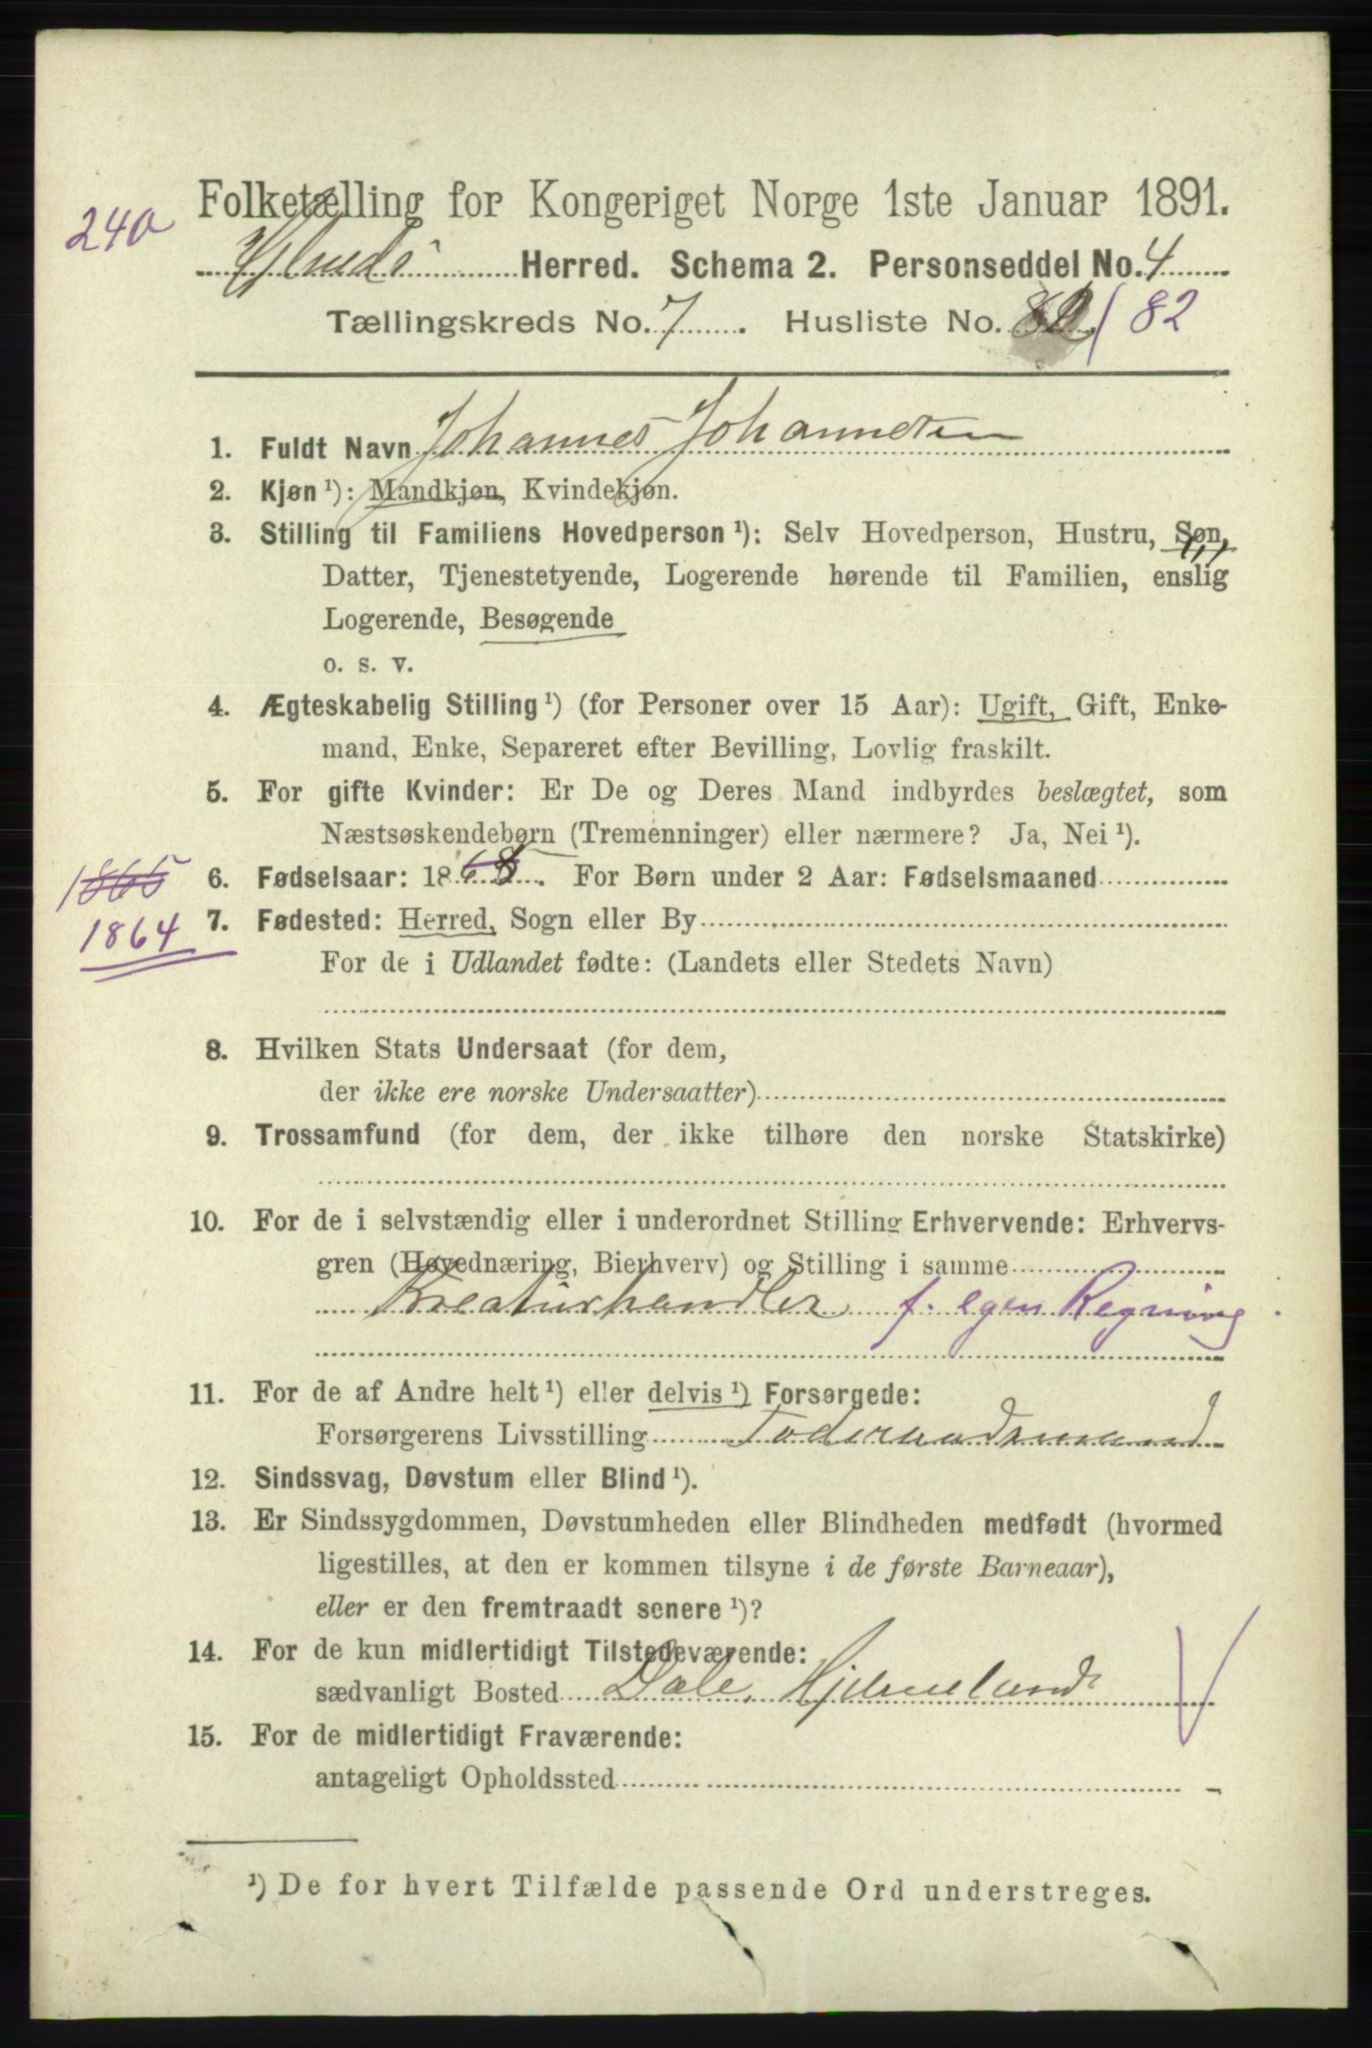 Folketælling for Kongeriget Norge 1ste Januar 1891.
240
Herred. Schema 2. Personseddel No. 4
Tællingskreds No. 7. Husliste No. 82 / 82
1. Fuldt Navn Johannes Johannesen
2. Kjøn ¹): Mandkjøn, Kvindekjøn.
3. Stilling til Familiens Hovedperson ¹): Selv Hovedperson, Hustru, Søn,
Datter, Tjenestetyende, Logerende hørende til Familien, enslig
Logerende, Besøgende
o. s. v.
4. Ægteskabelig Stilling ¹) (for Personer over 15 Aar): Ugift, Gift, Enke-
mand, Enke, Separeret efter Bevilling, Lovlig fraskilt.
5. For gifte Kvinder: Er De og Deres Mand indbyrdes beslægtet, som
Næstsøskendebørn (Tremenninger) eller nærmere? Ja, Nei ¹).
1865
6. Fødselsaar: 18 . For Børn under 2 Aar: Fødselsmaaned
1864
7. Fødested: Herred, Sogn eller By
For de i Udlandet fødte: (Landets eller Stedets Navn)
8. Hvilken Stats Undersaat (for dem,
der ikke ere norske Undersaatter)
9. Trossamfund (for dem, der ikke tilhøre den norske Statskirke)
10. For de i selvstændig eller i underordnet Stilling Erhvervende: Erhvervs-
gren (Hovednæring, Bierhverv) og Stilling i samme
Kreaturhandler f. egen Regning.
11. For de af Andre helt ¹) eller delvis ¹) Forsørgede:
Forsørgerens Livsstilling Föderaadsmand
12. Sindssvag, Døvstum eller Blind ¹).
13. Er Sindssygdommen, Døvstumheden eller Blindheden medfødt (hvormed
ligestilles, at den er kommen tilsyne i de første Barneaar),
eller er den fremtraadt senere ¹)?
14. For de kun midlertidigt Tilstedeværende:
sædvanligt Bosted Dale, Hjelmeland
15. For de midlertidigt Fraværende:
antageligt Opholdssted
¹) De for hvert Tilfælde passende Ord understreges.